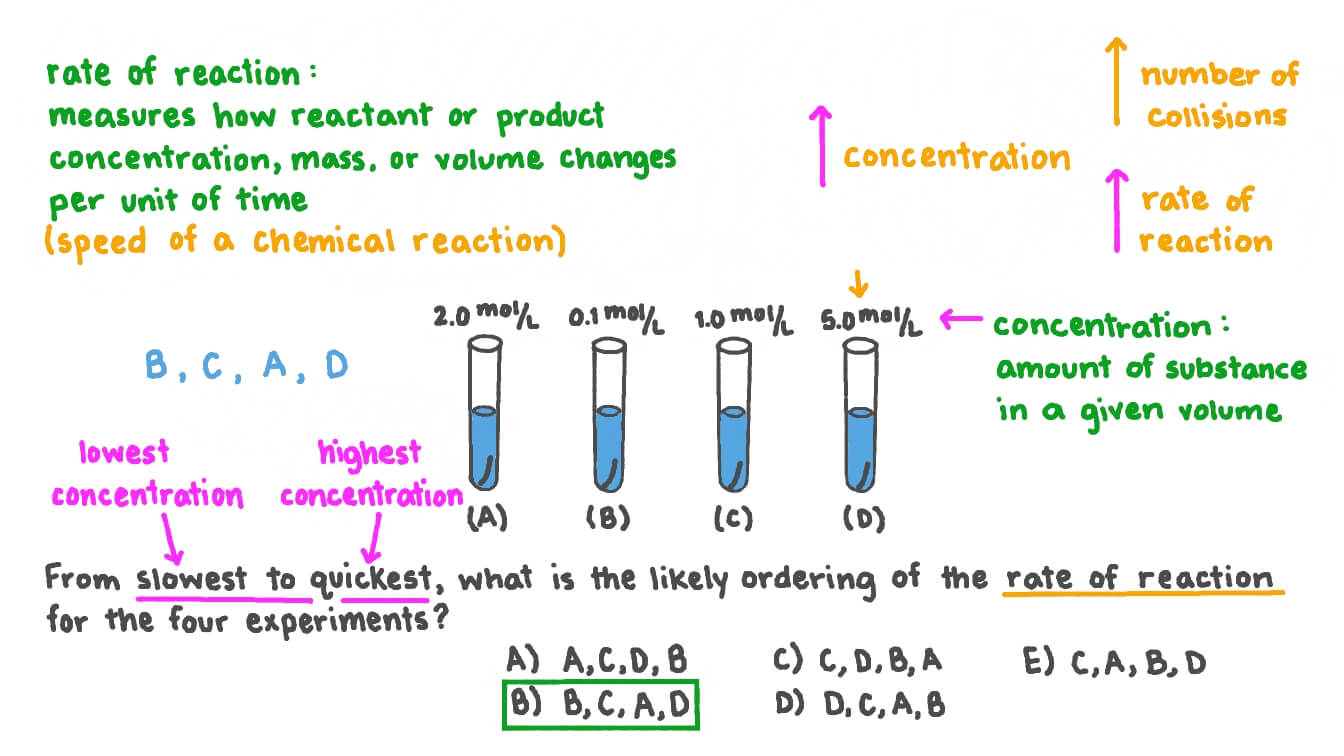 rate of reaction:
measures how reactant or product
concentration, mass, or volume changes
per unit of time
(speed of a chemical reaction)
concentration
number of
collisions
rate of
reaction
2.0 mol/L 0.1 mol/L 1.0 mol/L 5.0 mol/L
concentration:
amount of substance
in a given volume
B, C, A, D
lowest
concentration
highest
concentration
(A) (B) (C) (D)
From slowest to quickest, what is the likely ordering of the rate of reaction
for the four experiments?
A) A, C, D, B C) C, D, B, A E) C, A, B, D
B) B, C, A, D D) D, C, A, B